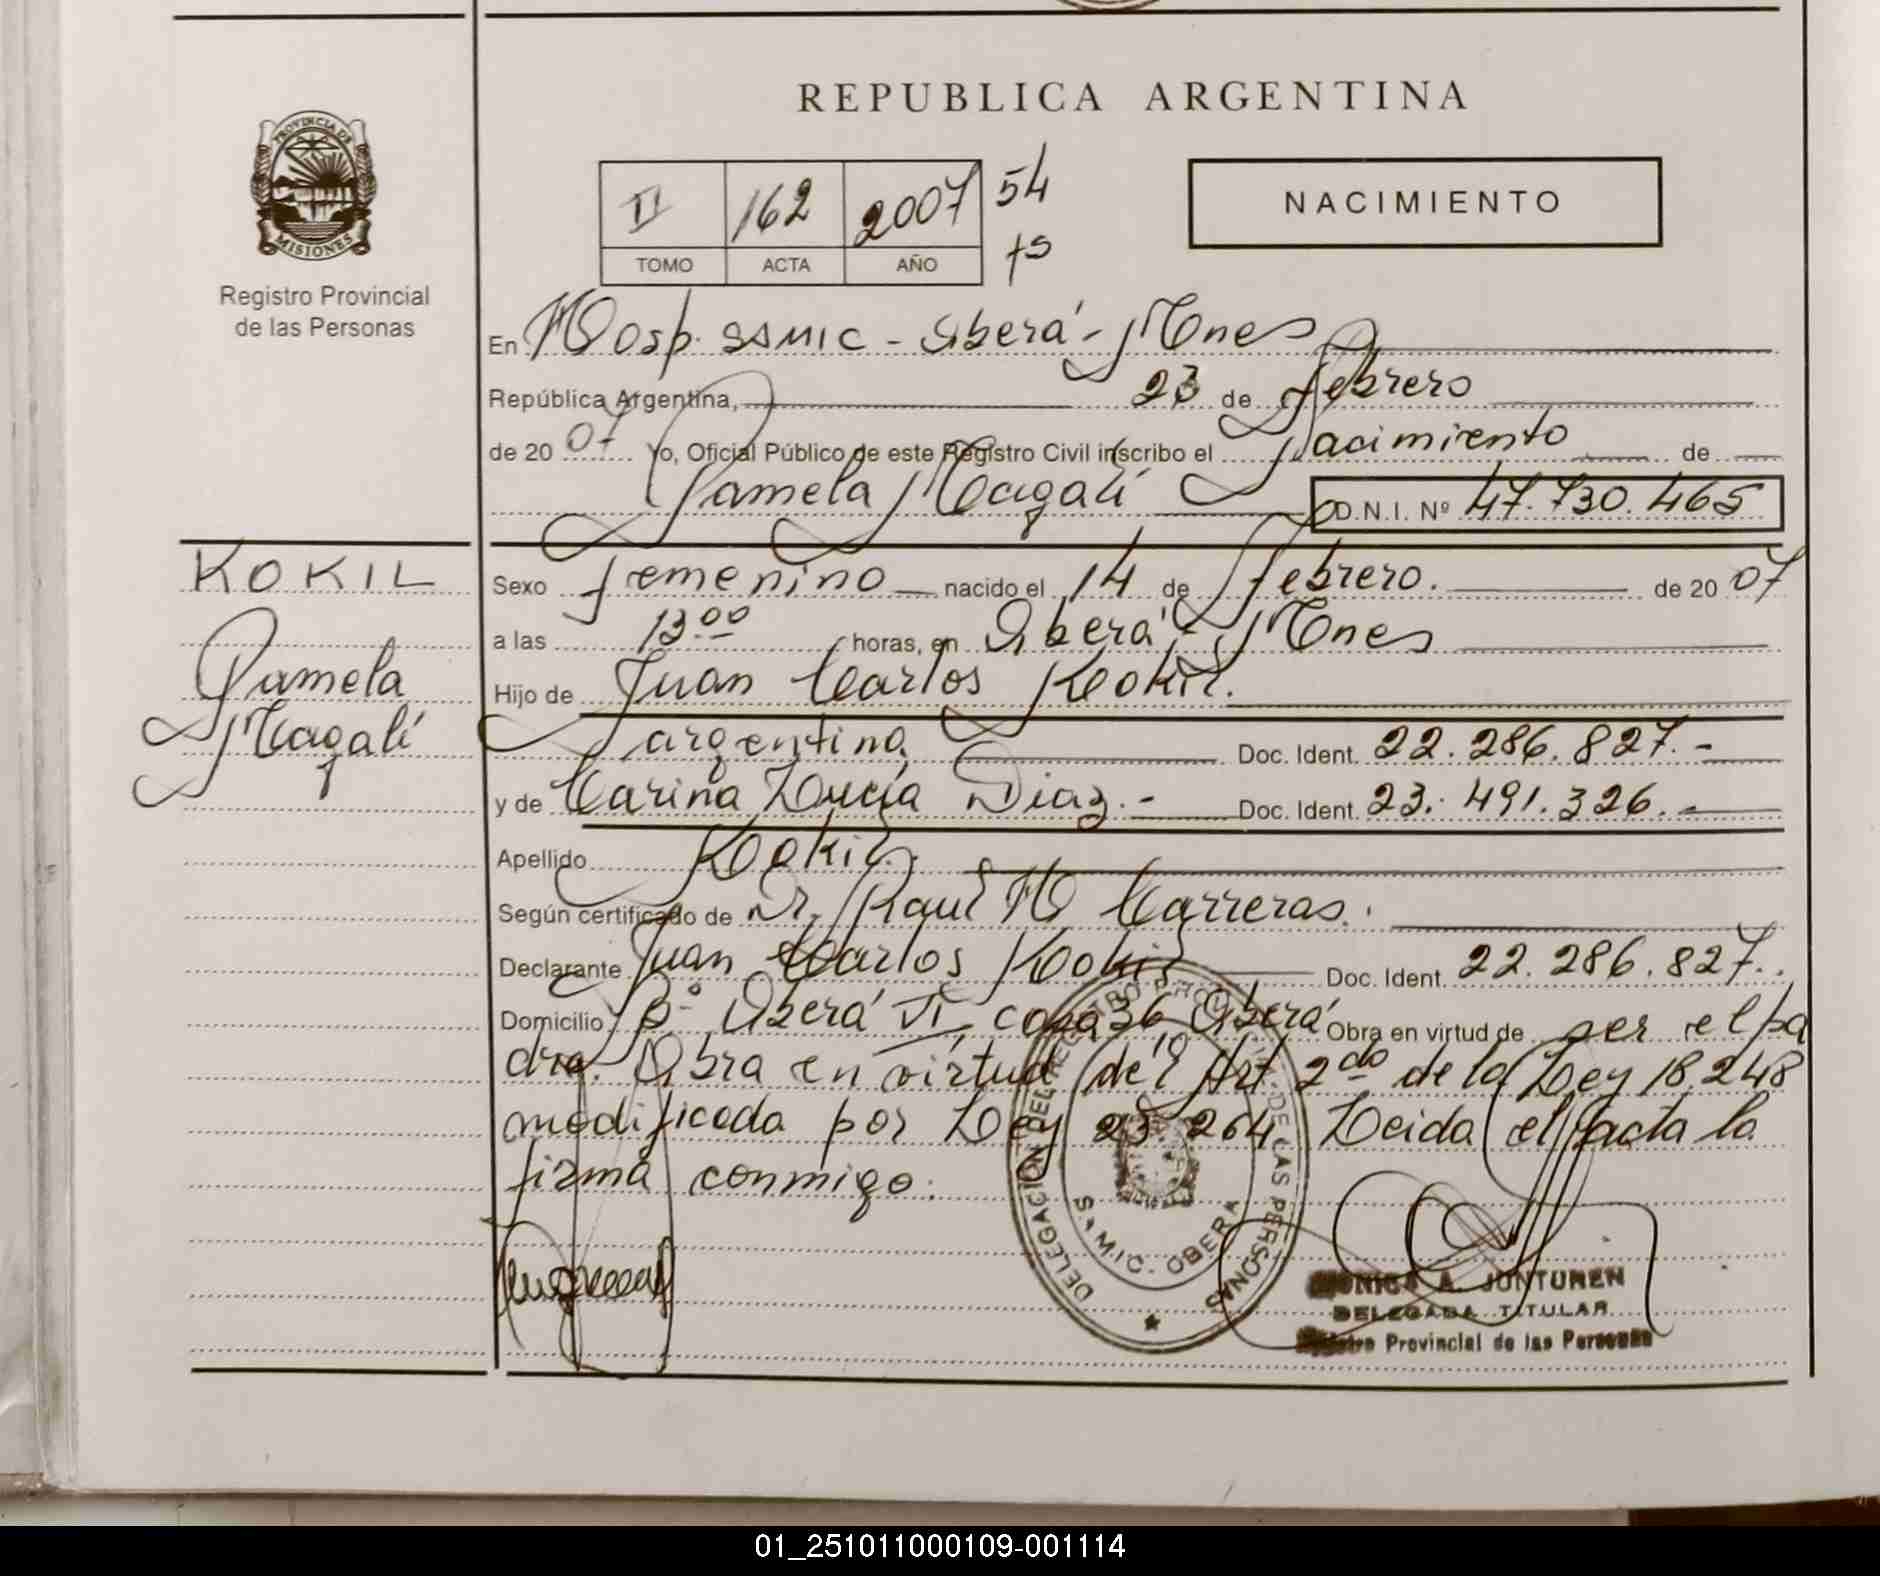 REPUBLICA ARGENTINA
PROVINCIA DE
MISIONES
Registro Provincial
de las Personas
II 162 2007 54
TOMO ACTA AÑO
NACIMIENTO
En Hosp. SAMIC - Oberá - Mnes
República Argentina, 23 de febrero
de 20 07 Yo, Oficial Público de este Registro Civil inscribo el Nacimiento de
Pamela Magalí D.N.I. Nº 47.730.465
KOKIL
Pamela
Magalí
Sexo femenino nacido el 14 de febrero. de 20 07
a las 13 00 horas, en Oberá - Mnes
Hijo de Juan Carlos Kokil.
argentina Doc. Ident. 22.286.827.-
y de Carina Lucía Diaz.- Doc. Ident. 23.491.326.-
Apellido Kokil.
Según certificado de Dr. Raul H Carreras.
Declarante Juan Carlos Kokil Doc. Ident. 22.286.827.
Domicilio Bº Oberá VI casa 36 Oberá Obra en virtud de ser el pa
dre. Obra en virtud del Art 2do de la Ley 18.248
modificada por Ley 23.264 Leida el acta la
firma conmigo.
DELEGACION DEL REGISTRO PROVINCIAL DE LAS PERSONAS
S.A.M.I.C. OBERA
MONICA A. JUNTUNEN
DELEGADA TITULAR
Registro Provincial de las Personas
01_251011000109-001114